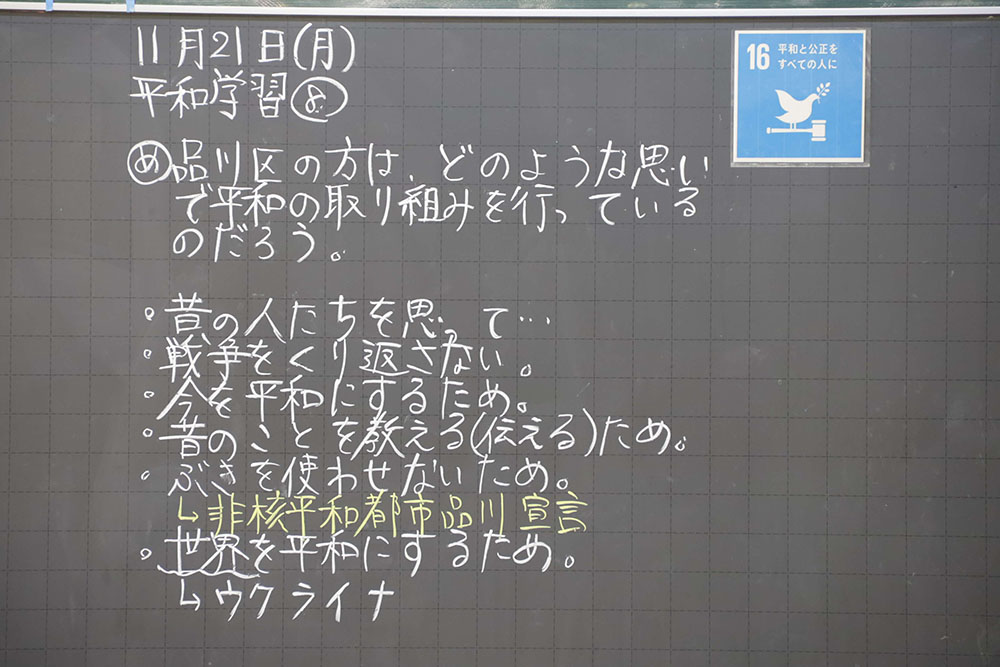 11月21日(月)
平和学習⑧
16 平和と公正を
すべての人に
め 品川区の方は、どのような思い
で平和の取り組みを行っている
のだろう。
・昔の人たちを思って…
・戦争をくり返さない。
・今を平和にするため。
・昔のことを教える(伝える)ため。
・ぶきを使わせないため。
↳非核平和都市品川宣言
・世界を平和にするため。
↳ウクライナ